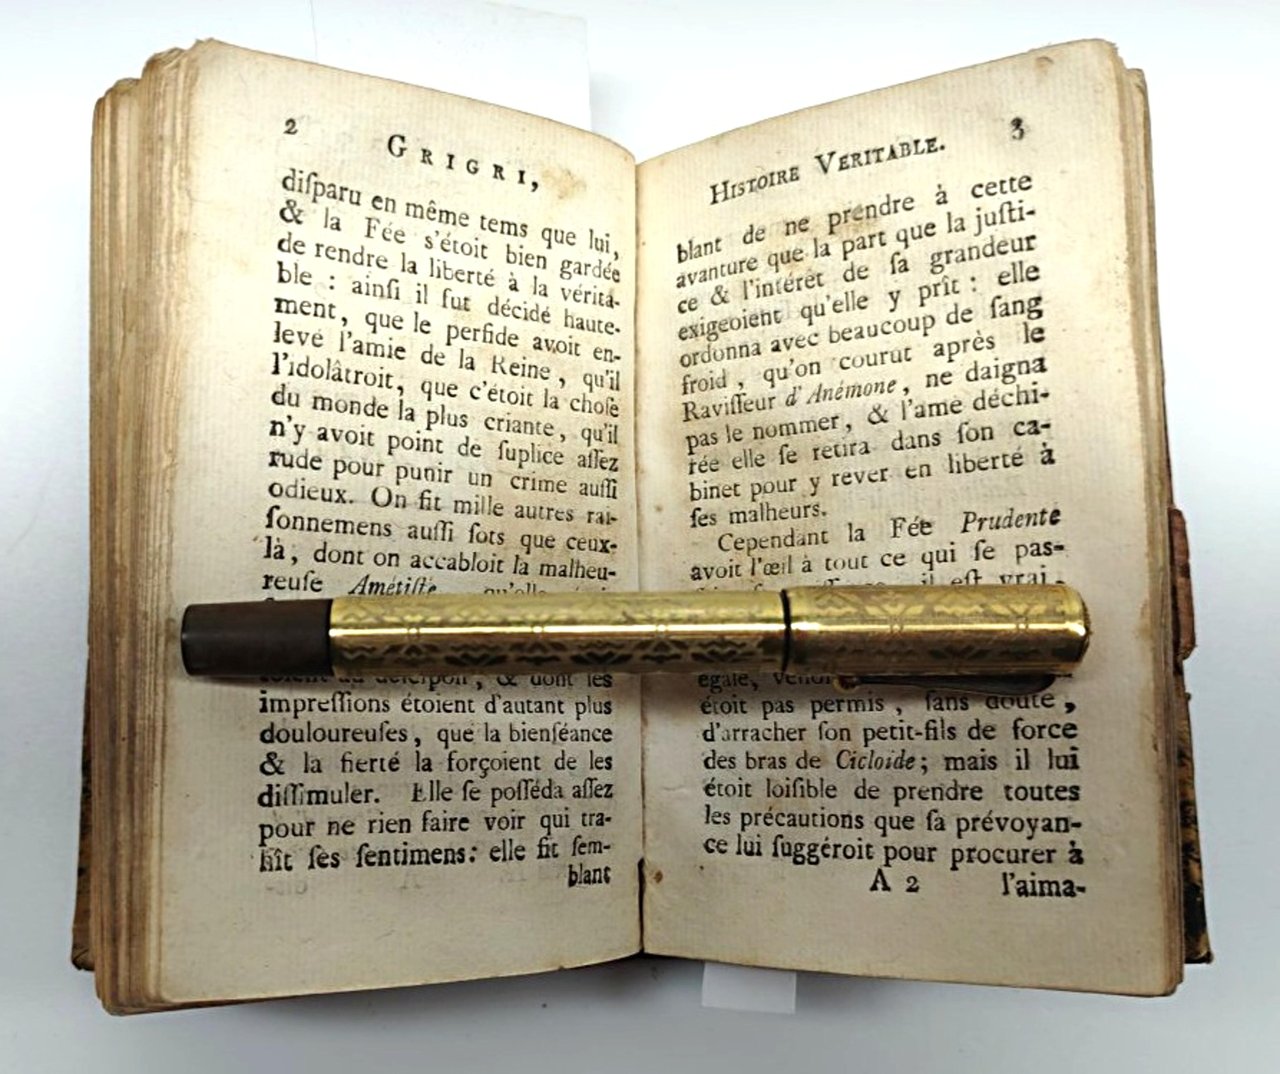 2
GRIGRI,
diſparu en même tems que lui,
& la Fée s'étoit bien gardée
de rendre la liberté à la vérita-
ble : ainſi il fut décidé haute-
ment, que le perfide avoit en-
levé l'amie de la Reine, qu'il
l'idolâtroit, que c'étoit la choſe
du monde la plus criante, qu'il
n'y avoit point de ſuplice aſſez
rude pour punir un crime auſſi
odieux. On fit mille autres rai-
ſonnemens auſſi ſots que ceux-
là, dont on accabloit la malheu-
reuſe Amétiſte, qu'elle
au deſeſpoir, & dont les
impreſſions étoient d'autant plus
douloureuſes, que la bienſéance
& la fierté la forçoient de les
diſſimuler. Elle ſe poſſéda aſſez
pour ne rien faire voir qui tra-
hît ſes ſentimens: elle fit ſem-
blant
HISTOIRE VERITABLE. 3
blant de ne prendre à cette
avanture que la part que la juſti-
ce & l'intérêt de ſa grandeur
exigeoient qu'elle y prît : elle
ordonna avec beaucoup de ſang
froid, qu'on courut après le
Raviſſeur d'Anémone, ne daigna
pas le nommer, & l'ame déchi-
rée elle ſe retira dans ſon ca-
binet pour y rever en liberté à
ſes malheurs.
Cependant la Fée Prudente
avoit l'œil à tout ce qui ſe paſ-
il eſt vrai
égale,
étoit pas permis, ſans doute,
d'arracher ſon petit-fils de force
des bras de Cicloide; mais il lui
étoit loiſible de prendre toutes
les précautions que ſa prévoyan-
ce lui ſuggéroit pour procurer à
A 2 l'aima-